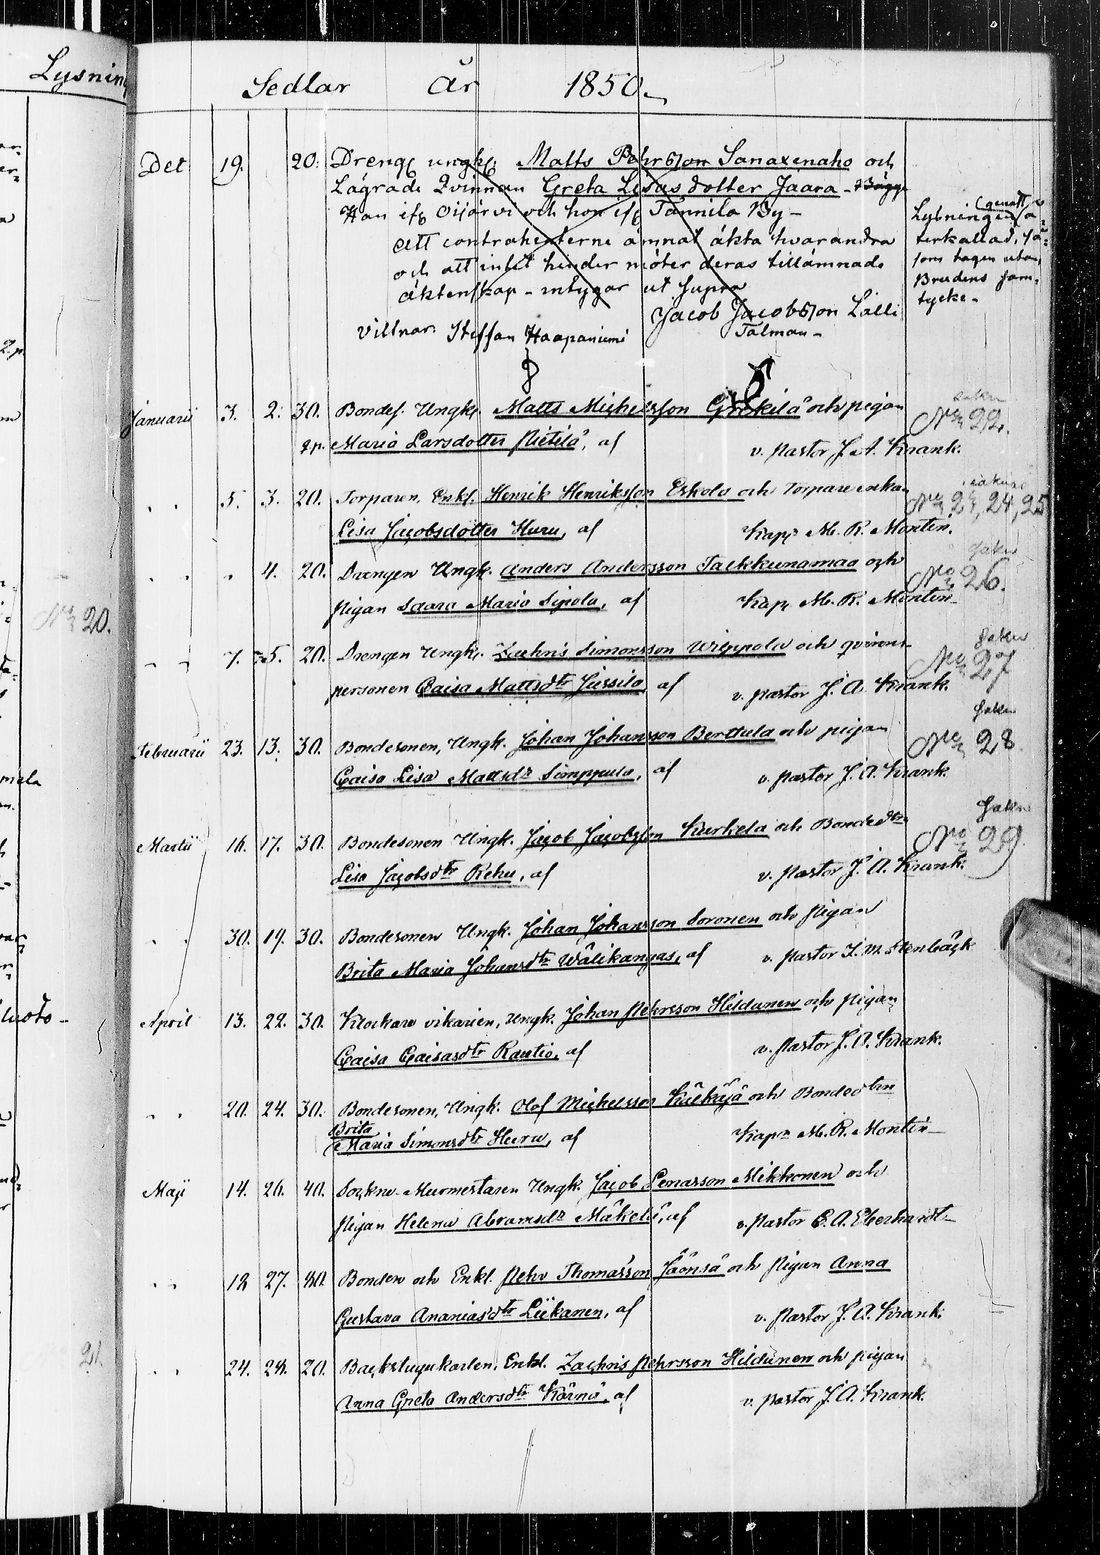 Lysnin
Sedlar År 1850.
Det 19. 20. Drengs ungk. Matts Pehrsson Sanaxenaho och
Lägrade Qvinnan Greta Lisas dotter Jaara - Bägge
Han ifr. Oijärvi och hon ifr. Tannila By -
att contrahenterne ämnat äkta hvarandra
och att intet hinder möter deras tillämnade
äktenskap - intygar ut supra
Jacob Jacobsson Lälli
Villnar Steffan Haapaniemi Tålman -
genast
Lysningen å-
terkallad, så-
som tagen utan
Brudens sam-
tycke -
Januarii 3. 2. 30. Bondes. Ungk. Matts Michelsson Grekilä och pigan
2 p. Maria Larsdotter Pietilä, af v. Pastor J. A. Krank.
No 22.
" " 5. 3. 20. Torparen, Enkl. Henrik Henriksson Eskola och Torpare enkan
Lisa Jacobsdotter Huru, af Kapl. M. R. Montin.
No 23, 24, 25
" " " 4. 20. Drengen Ungk. Anders Andersson Taskkunamaa och
Pigan Saara Maria Sipola, af Kapl. M. R. Montin
No 26.
No 20.
" " 7. 5. 20. Drengen Ungk. Zachris Simonsson Wilppola och qvinns-
personen Caisa Mattsdtr Jussila, af v. Pastor J. A. Krank.
No 27
Februarii 23. 13. 30. Bondesonen, Ungk. Johan Johansson Berttula och pigan
Caisa Lisa Mattsdr Simppula, af v. Pastor J. A. Krank.
No 28.
Martii 16. 17. 30. Bondesonen Ungk. Jacob Jacobsson Kurkela och Bondedtr
Lisa Jacobsdtr Rehu, af v. Pastor J. A. Krank.
No 29
" " 30. 19. 30. Bondesonen Ungk. Johan Johansson Soronen och Pigan
Brita Maria Johansdtr Wälikangas, af v. Pastor J. M. Stenbäck
April 13. 22. 30. Klockare vikarien, Ungk. Johan Pehrsson Hildunen och Pigan
Caisa Caisasdtr Rautio, af v. Pastor J. A. Krank.
" " 20. 24. 30. Bondesonen, Ungk. Olof Michelsson och Bondedtren
Brita
Maria Simonsdtr Huru, af Kapl. M. R. Montin
Maji 14. 26. 40. Sockne-Murmestaren Ungk. Jacob Lenasson Mikkonen och
Pigan Helena Abramsdr Mäkelä, af v. Pastor E. A. Eberhardt
" " 18 27. 30. Bonden och Enkl. Pehr Thomasson Jäönsä och Pigan Anna
Gustava Ananiasdtr Liikanen, af v. Pastor J. A. Krank.
21.
" " 24. 28. 20. Backstugukarlen, Enkl. Zachris Pehrsson Hildunen och Pigan
Anna Greta Andersdtr Kärnä, af v. Pastor J. A. Krank.